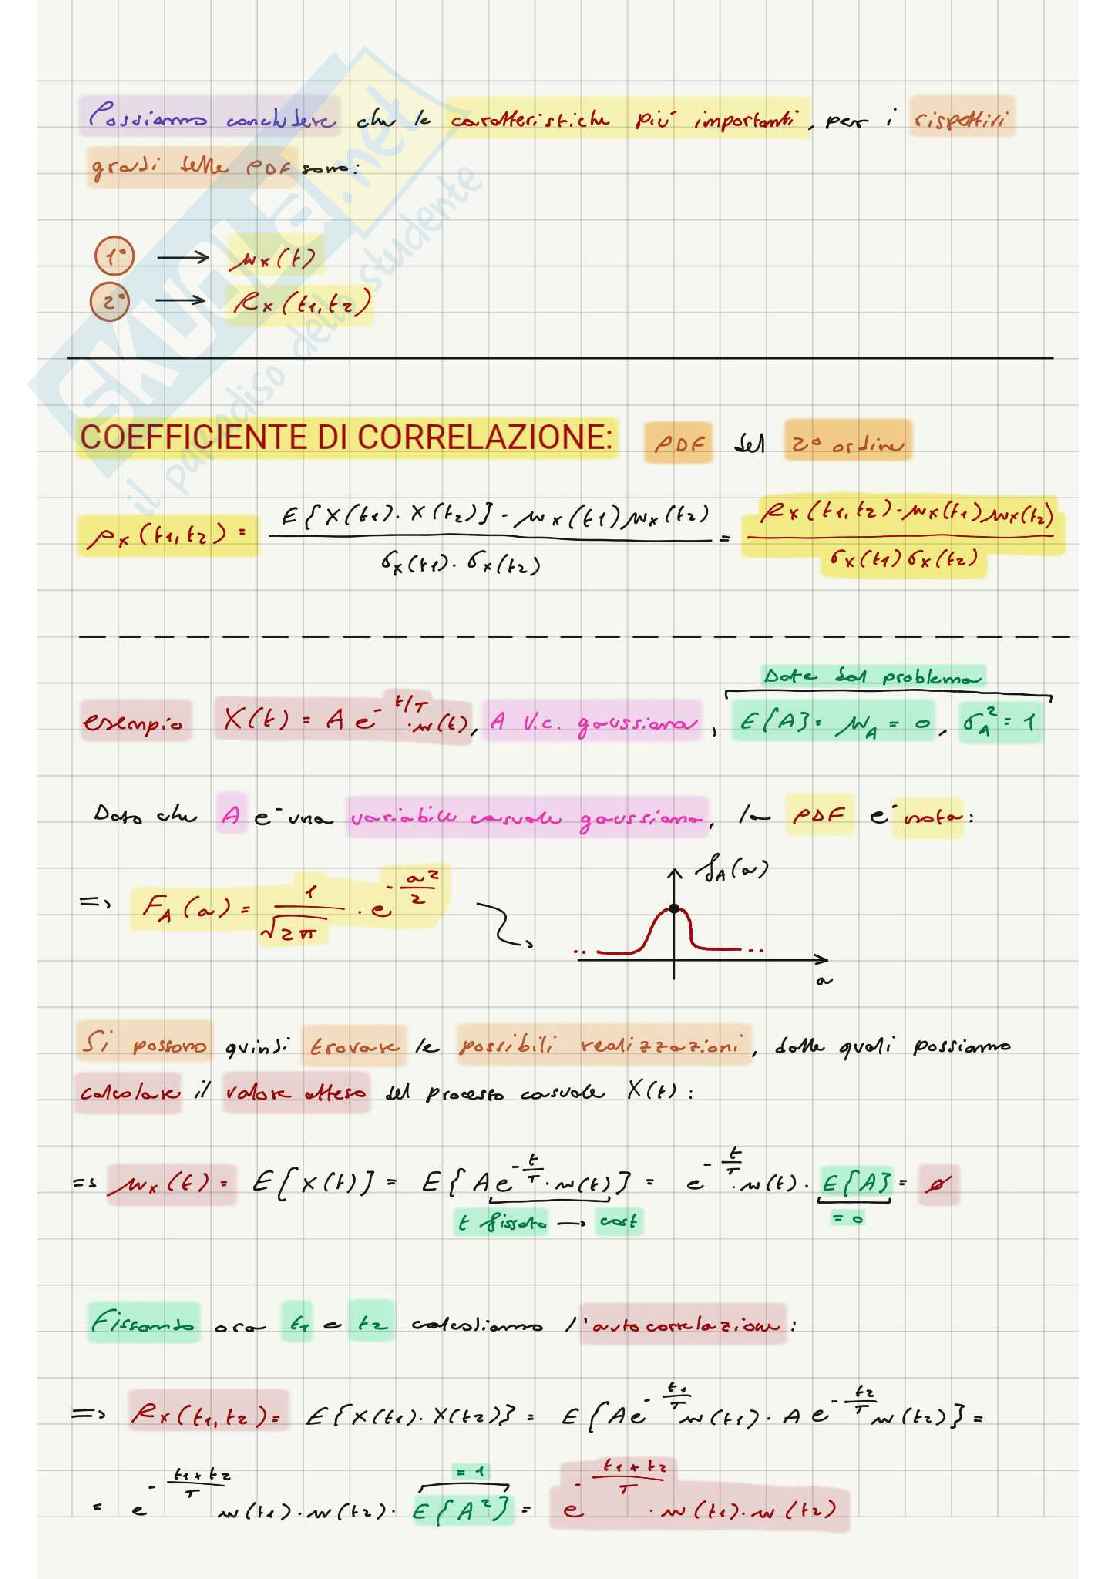 Possiamo concludere che le caratteristiche più importanti, per i rispettivi
gradi delle PDF sono:
1° → μx(t)
2° → Rx(t1,t2)
COEFFICIENTE DI CORRELAZIONE: PDF del 2° ordine
ρx(t1,t2) = E{X(t1)·X(t2)} - μx(t1)μx(t2) / σx(t1)·σx(t2) = Rx(t1,t2)-μx(t1)μx(t2) / σx(t1)σx(t2)
Date dal problema
esempio X(t) = A e^(-t/T)·u(t), A V.C. gaussiana, E{A} = μA = 0, σA² = 1
Dato che A è una variabile casuale gaussiana, la PDF è nota:
=> FA(a) = 1/√2π · e^(-a²/2) fA(a)
a
Si possono quindi trovare le possibili realizzazioni, dalle quali possiamo
calcolare il valore atteso del processo casuale X(t):
=> μx(t) = E{X(t)} = E{A e^(-t/T)·u(t)} = e^(-t/T)·u(t)·E{A} = ø
t fissato → cost = 0
Fissando ora t1 e t2 calcoliamo l'autocorrelazione:
=> Rx(t1,t2) = E{X(t1)·X(t2)} = E{A e^(-t1/T) u(t1)·A e^(-t2/T) u(t2)} =
= 1
= e^(-(t1+t2)/T) u(t1)·u(t2)·E{A²} = e^(-(t1+t2)/T)·u(t1)·u(t2)
SKUOLA.net
il paradiso dello studente